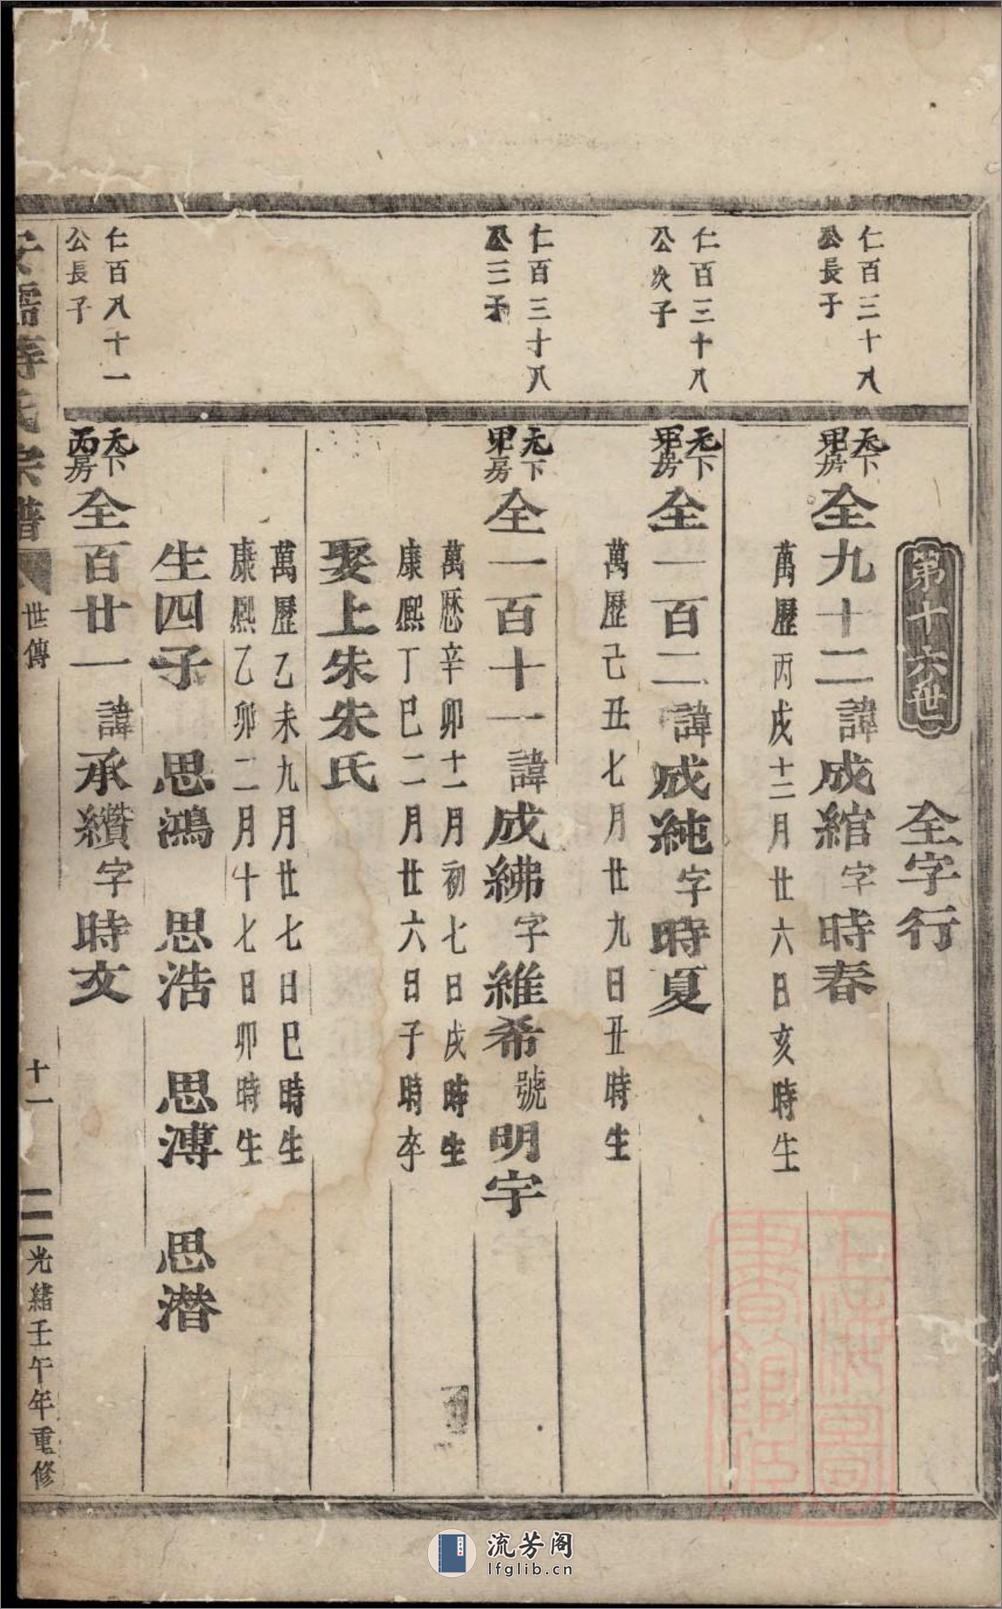 第十六世
全字行
仁百三十八
公長子
天下
甲房
全九十二諱成綰字時春
萬歷丙戌十二月廿六日亥時生
仁百三十八
公次子
天下
甲房
全一百二諱成純字時夏
萬歷己丑七月廿九日丑時生
仁百三十八
公三子
天下
甲房
全一百十一諱成紼字維希號明宇
萬愿辛卯十一月初七日戌時生
康熈丁巳二月廿六日子時卒
娶上朱朱氏
萬歷乙未九月廿七日巳時生
康熈乙卯二月十七日卯時生
生四子 思鴻 思浩 思漙 思潜
仁百八十一
公長子
天下
丙房
全百廿一諱承纘字時文
氏宗譜
世傳
十一
光緒壬午年重修
上海圖書館藏
流芳阁
lfglib.cn